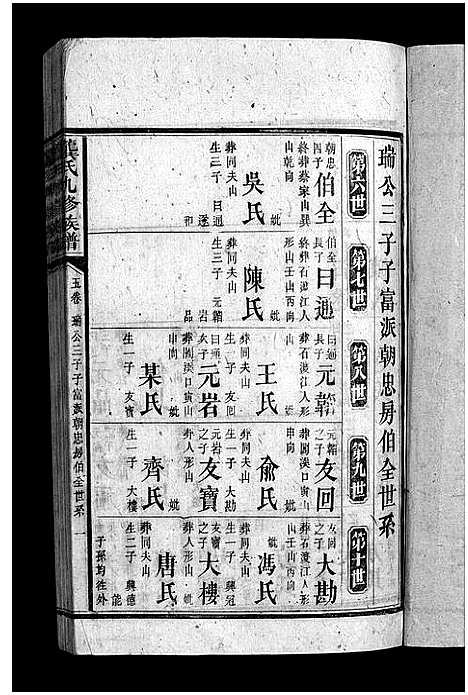 瑞公三子子富派朝忠房伯全世系
第六世
第七世
第八世
第九世
第十世
朝忠四子
伯全
終葬蔡家山巽山乾向
妣
吳氏
葬同夫山
生三子 日通
遂
和
伯全長子
日通
終葬石渡江人形山壬山丙向
妣
陳氏
葬同夫山
生三子 元韜
岩
品
日通長子
元韜
葬石渡江人形山壬山丙向
妣
王氏
葬同夫山
生一子 友回
日通次子
元岩
葬園溪口寅山申向
妣
某氏
生一子 友寶
元韜之子
友回
葬園溪口寅山申向
妣
俞氏
葬同夫山
生一子 大勘
元岩之子
友寶
葬人形山
妣
齊氏
葬同夫山
生一子 大樓
友回之子
大勘
葬石渡江人形山壬山丙向
妣
馮氏
葬同夫山
生一子 興冠
友寶之子
大樓
葬人形山
妣
唐氏
葬同夫山
生二子 興德
能
子孫均往外
氏九修族譜
五卷 瑞公三子子富派朝忠房伯全世系 一